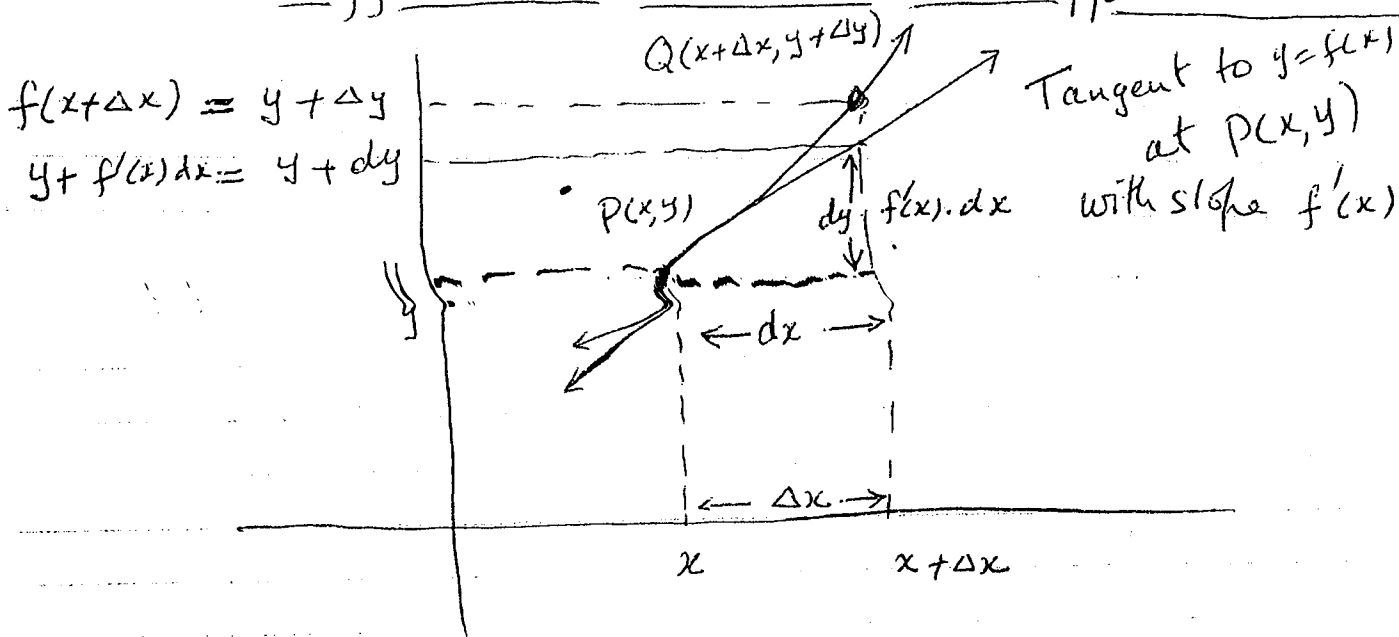 Q(x+Δx, y+Δy)
f(x+Δx) = y + Δy
y + f'(x) dx = y + dy
Tangent to y=f(x)
at P(x,y)
with slope f'(x)
P(x,y)
dy f'(x).dx
y
dx
Δx
x
x + Δx